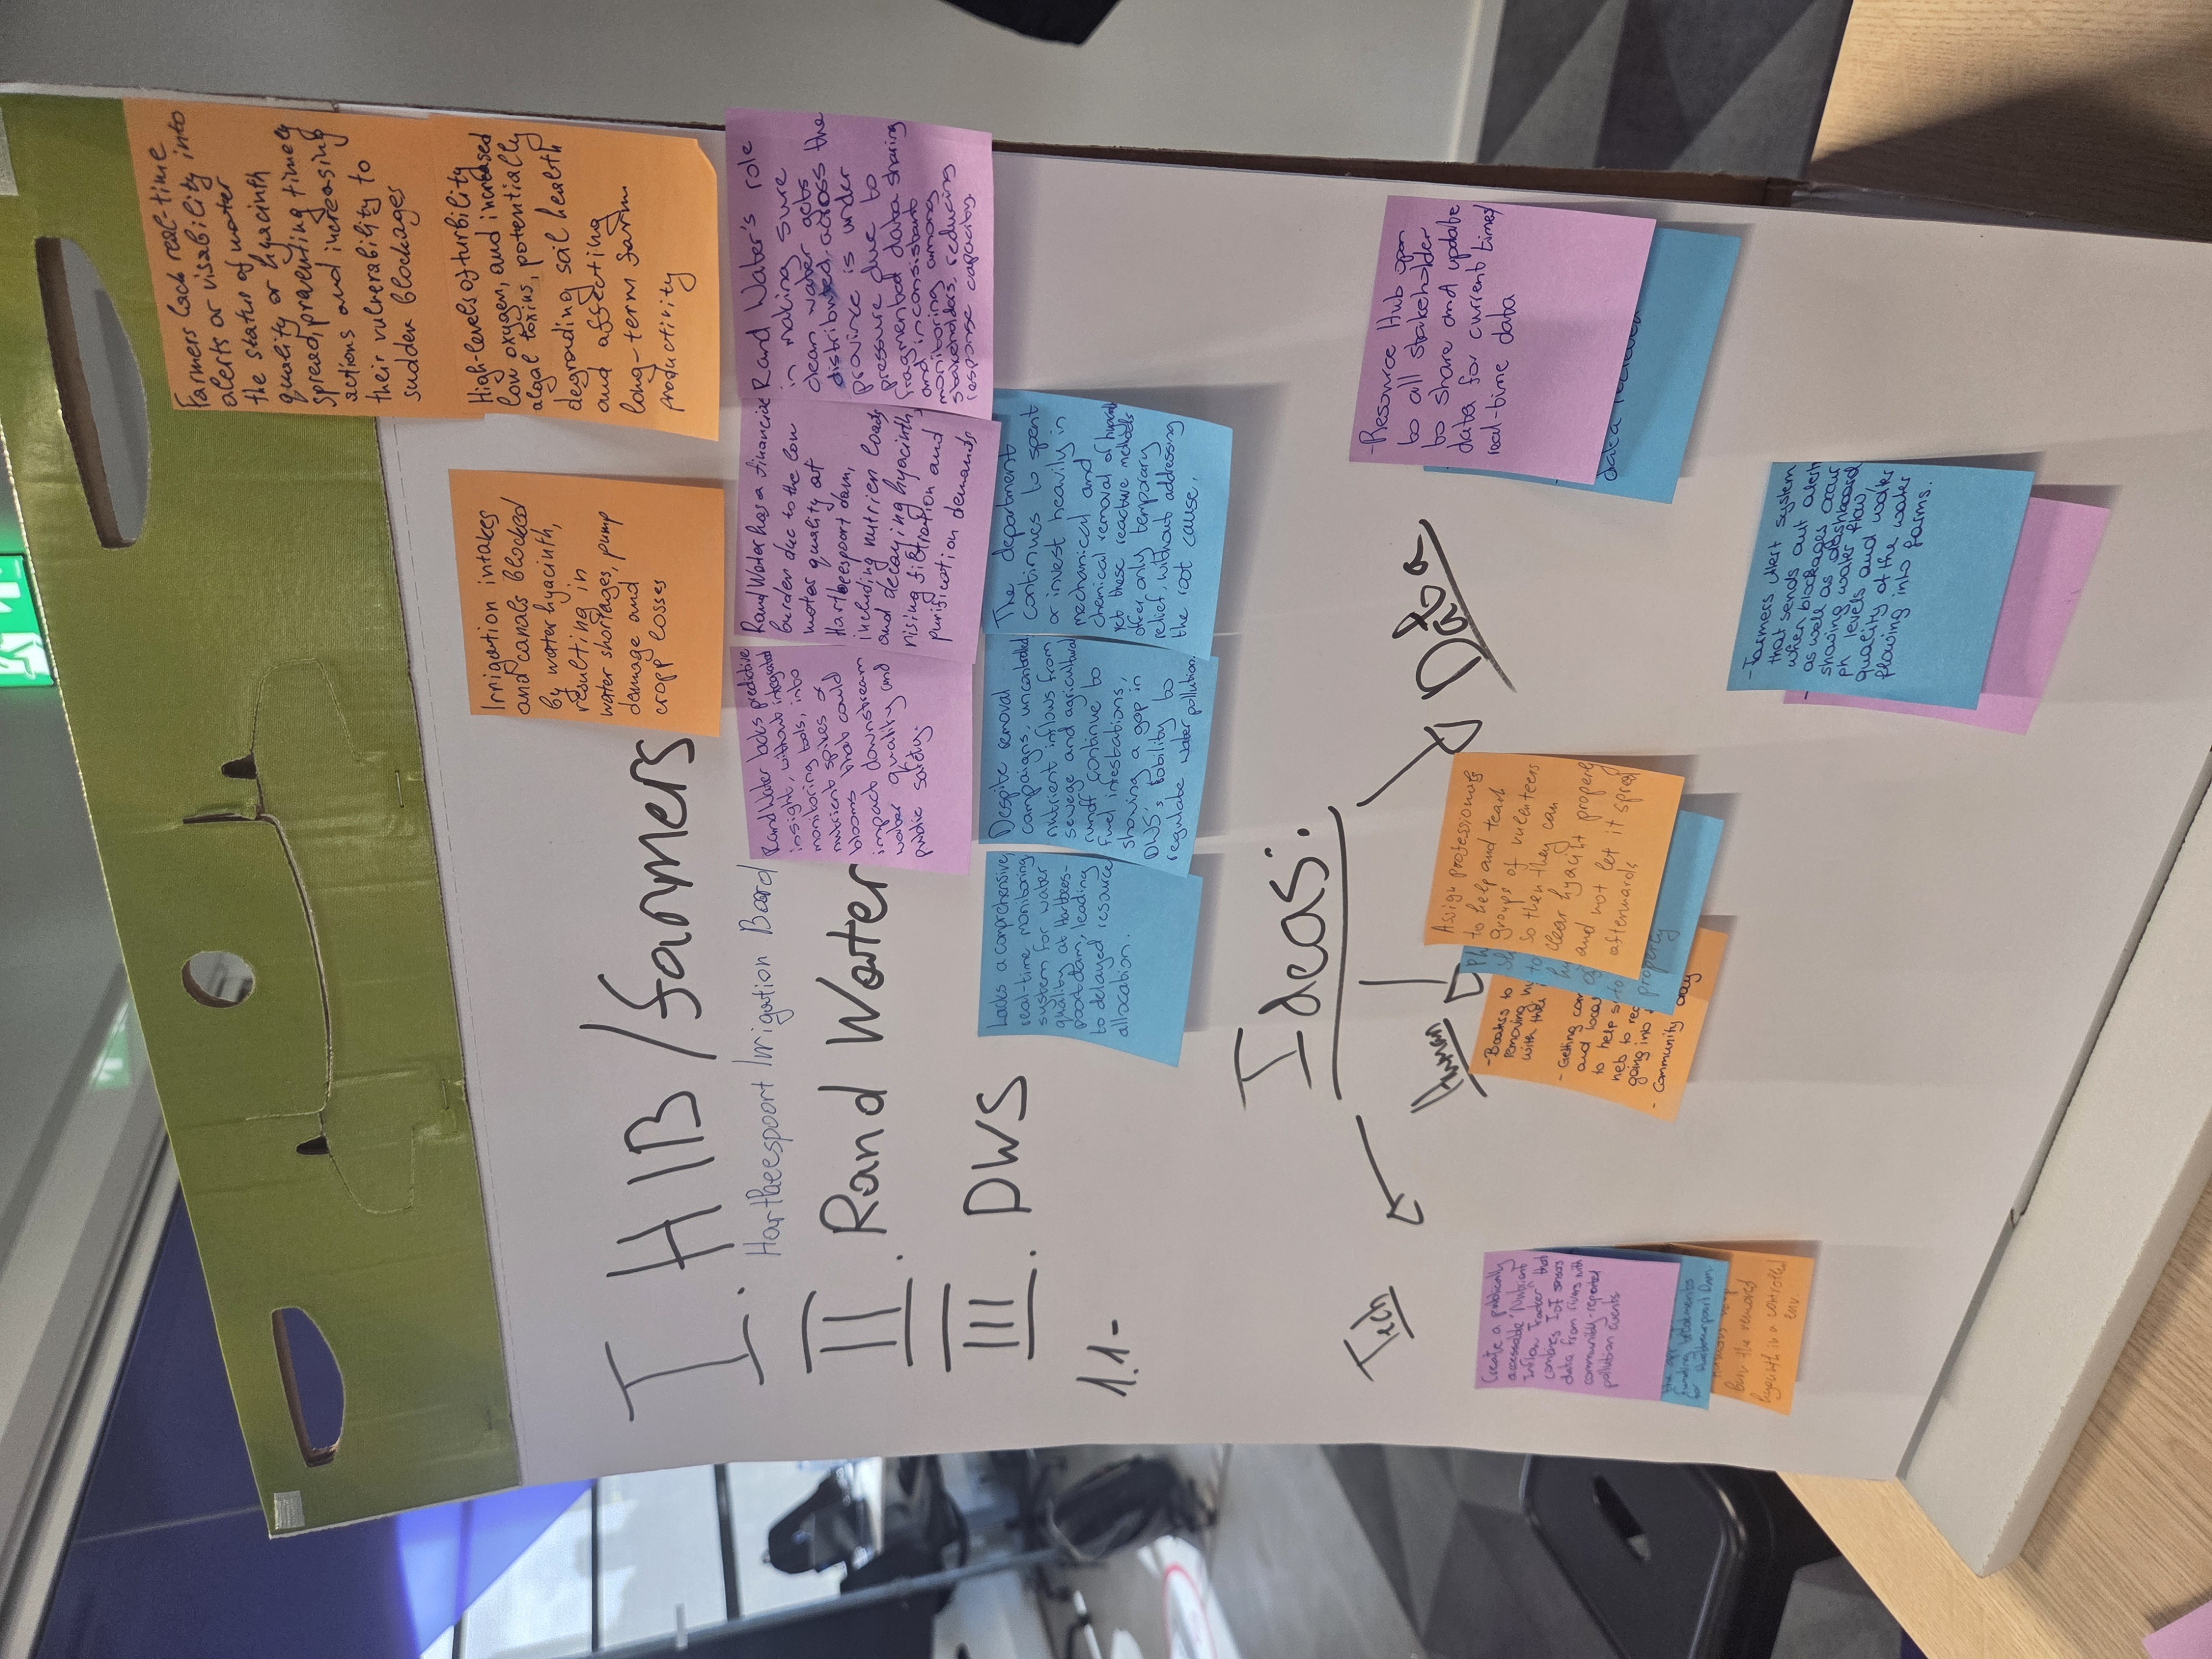 Farmers lack real-time
alerts or visability into
the status of water
quality or hyacinth
spread, preventing timely
actions and increasing
their vulnerability to
sudden blockages
Irrigation intakes
and canals blocked
by water hyacinth,
resulting in
water shortages, pump
damage and
cropp losses
High-levels of turbility
low oxygen, and increased
algal toxins, potentially
degrading soil health
and affecting
long-term farm
productivity
I. HIB/farmers
Hartbeespoort Irrigation Board
II. Rand Water
Rand Water lacks predictive
insight, without integrated
monitoring tools, into
nutrient spikes or
blooms that could
impact downstream
water quality and
public safety.
Rand Water has a financial
burder due to the low
water quality at
Hartbeespoort dam,
including nutrien loads
and decaying hyacinth,
rising filtration and
purification demands
Rand Water's role
in making sure
clean water gets
distributed across the
province is under
pressure due to
fragmented data sharing
and inconsistant
monitoring among
stakeholders, reducing
response capacity.
III. DWS
Lacks a comprehensive,
real-time monitoring
system for water
quality at Hartbees-
poort dam, leading
to delayed resource
allocation.
Despite removal
campaigns, uncontrolled
nutrient inflows from
sewege and agricultural
runoff continue to
fuel infestations,
showing a gap in
DWS's ability to
regulate water pollution.
The department
continues to spent
or invest heavily in
mechanical and
chemical removal of
yet these reactive methods
offer only temporary
relief, without addressing
the root cause.
1.1-
Ideas:
Tech
Human
Data
Create a publically
accessable "Nutrient
Inflow Tracker" that
combines IoT sensors
data from rivers with
community-reported
pollution events
the app
funding treatments
for Dam
burn the removed
hyacinth in a controlled
env.
-Boats to
removing
with their
- Getting
and local
to help
net to
going into
- Community day
to
of
to
property
Assign professionals
to help and teach
groups of vulenteers
so then they can
clear hyacint properly
and not let it spread
afterwards
-Resource Hub open
to all stakeholder
to share and update
data for current times/
real-time data
data recieved
-Farmers Alert system
that sends out alert
when blockages occur
as well as dashboard
showing water flow,
ph levels and water
quality of the water
flowing into farms.